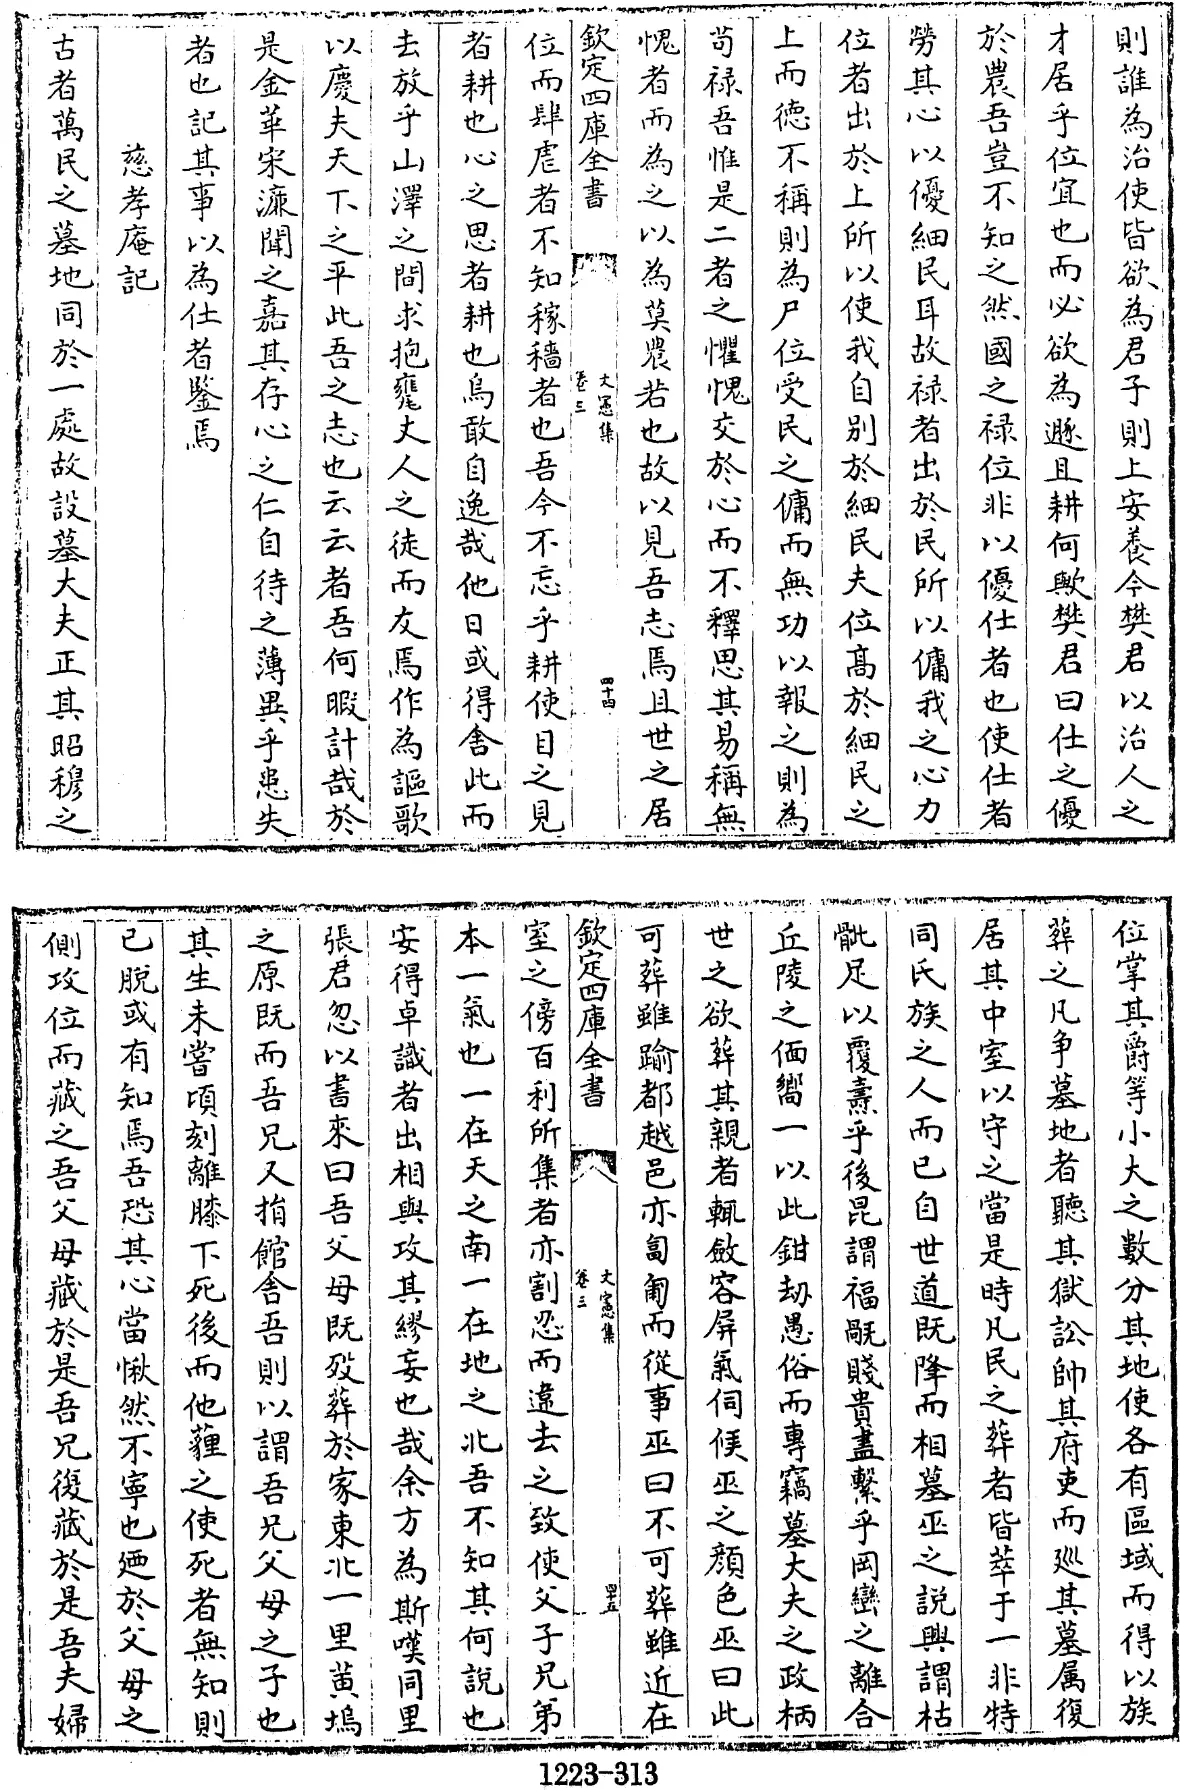 則誰為治使皆欲為君子則上安養今樊君以治人之
才居乎位宜也而必欲為遯且耕何歟樊君曰仕之優
於農吾豈不知之然國之祿位非以優仕者也使仕者
勞其心以優細民耳故祿者出於民所以傭我之心力
位者出於上所以使我自別於細民夫位髙於細民之
上而徳不稱則為尸位受民之傭而無功以報之則為
茍祿吾惟是二者之懼愧交於心而不釋思其易稱無
愧者而為之以為莫農若也故以見吾志焉且世之居
欽定四庫全書
文憲集
卷三
四十四
位而肆虐者不知稼穡者也吾今不忘乎耕使目之見
者耕也心之思者耕也烏敢自逸哉他日或得舍此而
去放乎山澤之間求抱甕丈人之徒而友焉作為謳歌
以慶夫天下之平此吾之志也云云者吾何暇計哉於
是金華宋濂聞之嘉其存心之仁自待之薄異乎患失
者也記其事以為仕者鑒焉
慈孝庵記
古者萬民之墓地同於一處故設墓大夫正其昭穆之
位掌其爵等小大之數分其地使各有區域而得以族
葬之凡爭墓地者聽其獄訟帥其府吏而廵其墓属復
居其中室以守之當是時凡民之葬者皆萃于一非特
同氏族之人而已自世道既降而相墓巫之説興謂枯
骴足以覆燾乎後昆謂福甈賤貴盡繫乎岡巒之離合
丘陵之偭嚮一以此鉗刼愚俗而專竊墓大夫之政柄
世之欲葬其親者輒斂容屏氣伺候巫之顔色巫曰此
可葬雖踰都越邑亦匍匐而從事巫曰不可葬雖近在
欽定四庫全書
文憲集
卷三
四十五
室之傍百利所集者亦割忍而違去之致使父子兄弟
本一氣也一在天之南一在地之北吾不知其何說也
安得卓識者出相與攻其繆妄也哉余方為斯嘆同里
張君忽以書來曰吾父母既歿葬於家東北一里黄塢
之原既而吾兄又捐館舍吾則以謂吾兄父母之子也
其生未嘗頃刻離膝下死後而他薶之使死者無知則
已脱或有知焉吾恐其心當愀然不寧也廼於父母之
側攻位而藏之吾父母藏於是吾兄復藏於是吾夫婦
1223-313